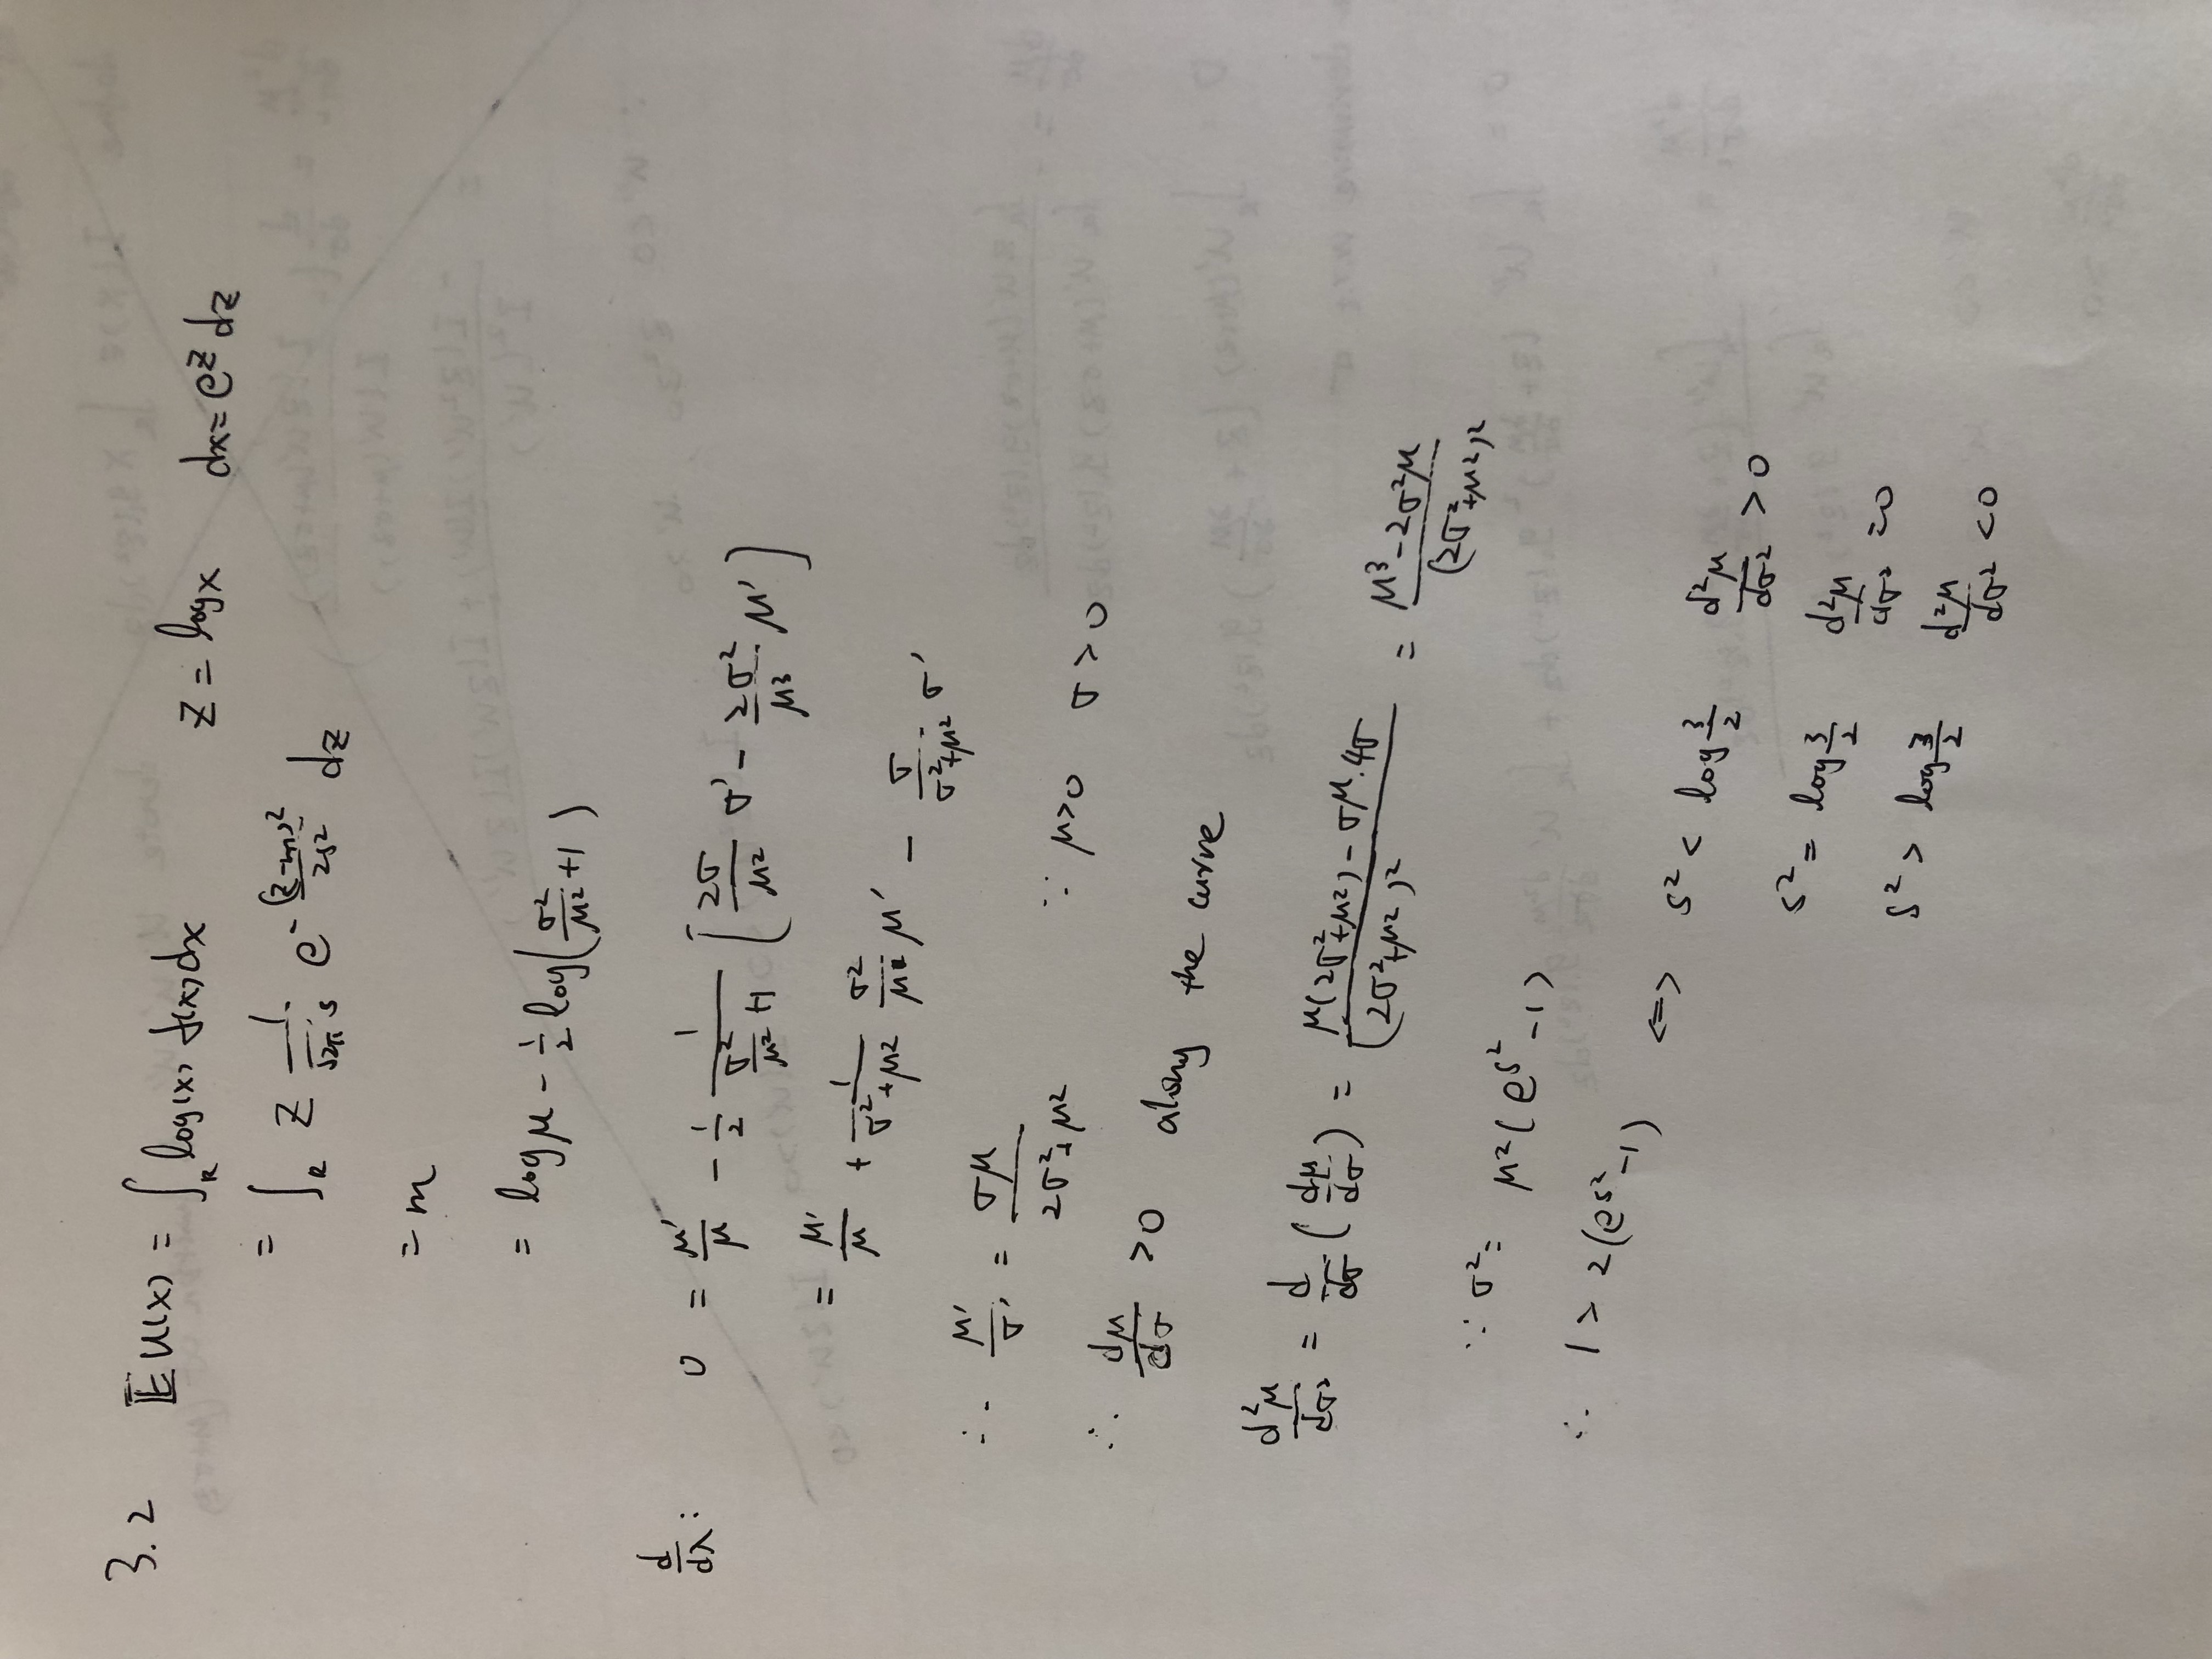 3.2 𝔼 U(x) = ∫_R log(x) f(x) dx    z = log x    dx = e^z dz
= ∫_R z 1/(√2π s) e^{-(z-m)²/2s²} dz
= m
= log μ - 1/2 log(σ²/μ² + 1)
d/dλ: 0 = μ'/μ - 1/2 1/(σ²/μ² + 1) [2σ/μ² σ' - 2σ²/μ³ μ']
= μ'/μ + 1/(σ²+μ²) σ²/μ μ' - σ/(σ²+μ²) σ'
∴ μ'/σ' = σμ/(2σ²+μ²)    ∵ μ>0 σ>0
∴ dμ/dσ >0 along the curve
d²μ/dσ² = d/dσ (dμ/dσ) = (μ(2σ²+μ²) - σμ·4σ)/(2σ²+μ²)² = (μ³-2σ²μ)/(2σ²+μ²)²
∵ σ² = μ²(e^{s²} -1)
∴ 1 > 2(e^{s²} -1) <=> s² < log 3/2    d²μ/dσ² > 0
s² = log 3/2    d²μ/dσ² = 0
s² > log 3/2    d²μ/dσ² < 0